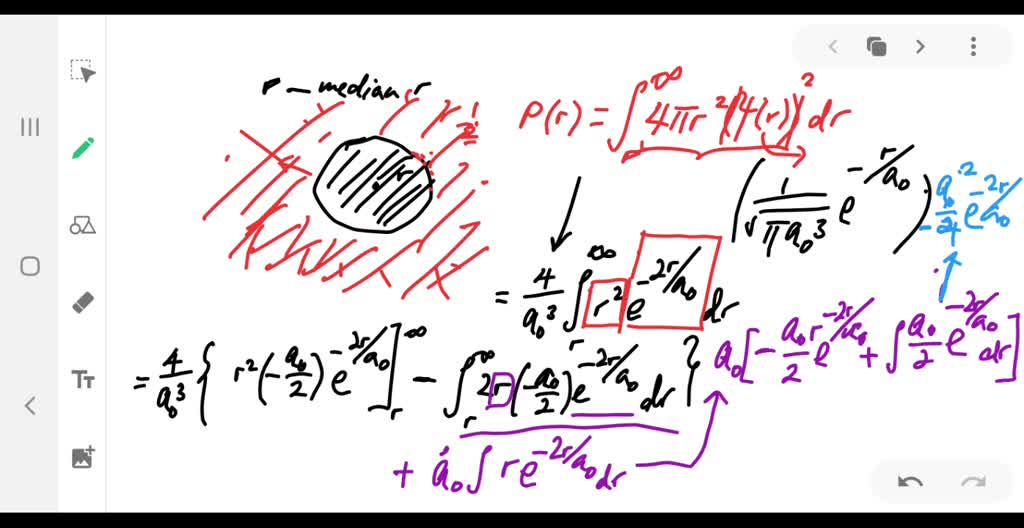 r - median r
r
1/2
P(r) = ∫^∞ 4πr² |ψ(r)|² dr
(1/√(πa₀³) e^(-r/a₀))²
-a₀²/4 e^(-2r/a₀)
= 4/a₀³ ∫_r^∞ r² e^(-2r/a₀) dr
= 4/a₀³ { r² (-a₀/2) e^(-2r/a₀) ]_r^∞ - ∫_r^∞ 2r (-a₀/2) e^(-2r/a₀) dr }
a₀ [ -a₀r/2 e^(-2r/a₀) + ∫ a₀/2 e^(-2r/a₀) dr ]
+ a₀ ∫ r e^(-2r/a₀) dr
Tт